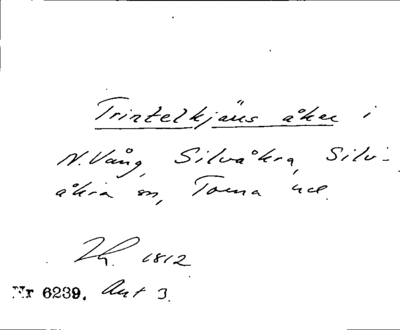 Trintelkjäns åker i
N. Vång, Silvåkra, Silv-
åkra sn, Torna hd.
1812
Nr 6239. Akt 3.